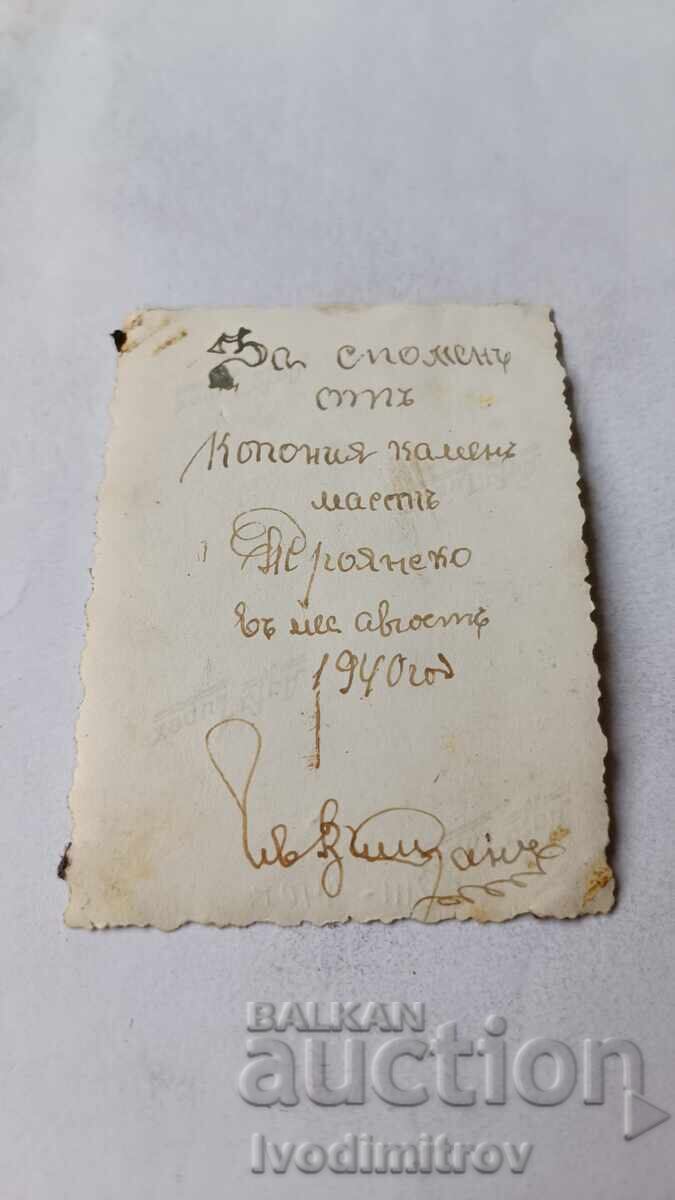 За споменъ
отъ
Копония каменъ
маестъ
Троянско
въ ме августъ
1940 год
BALKAN
auction
Ivodimitrov